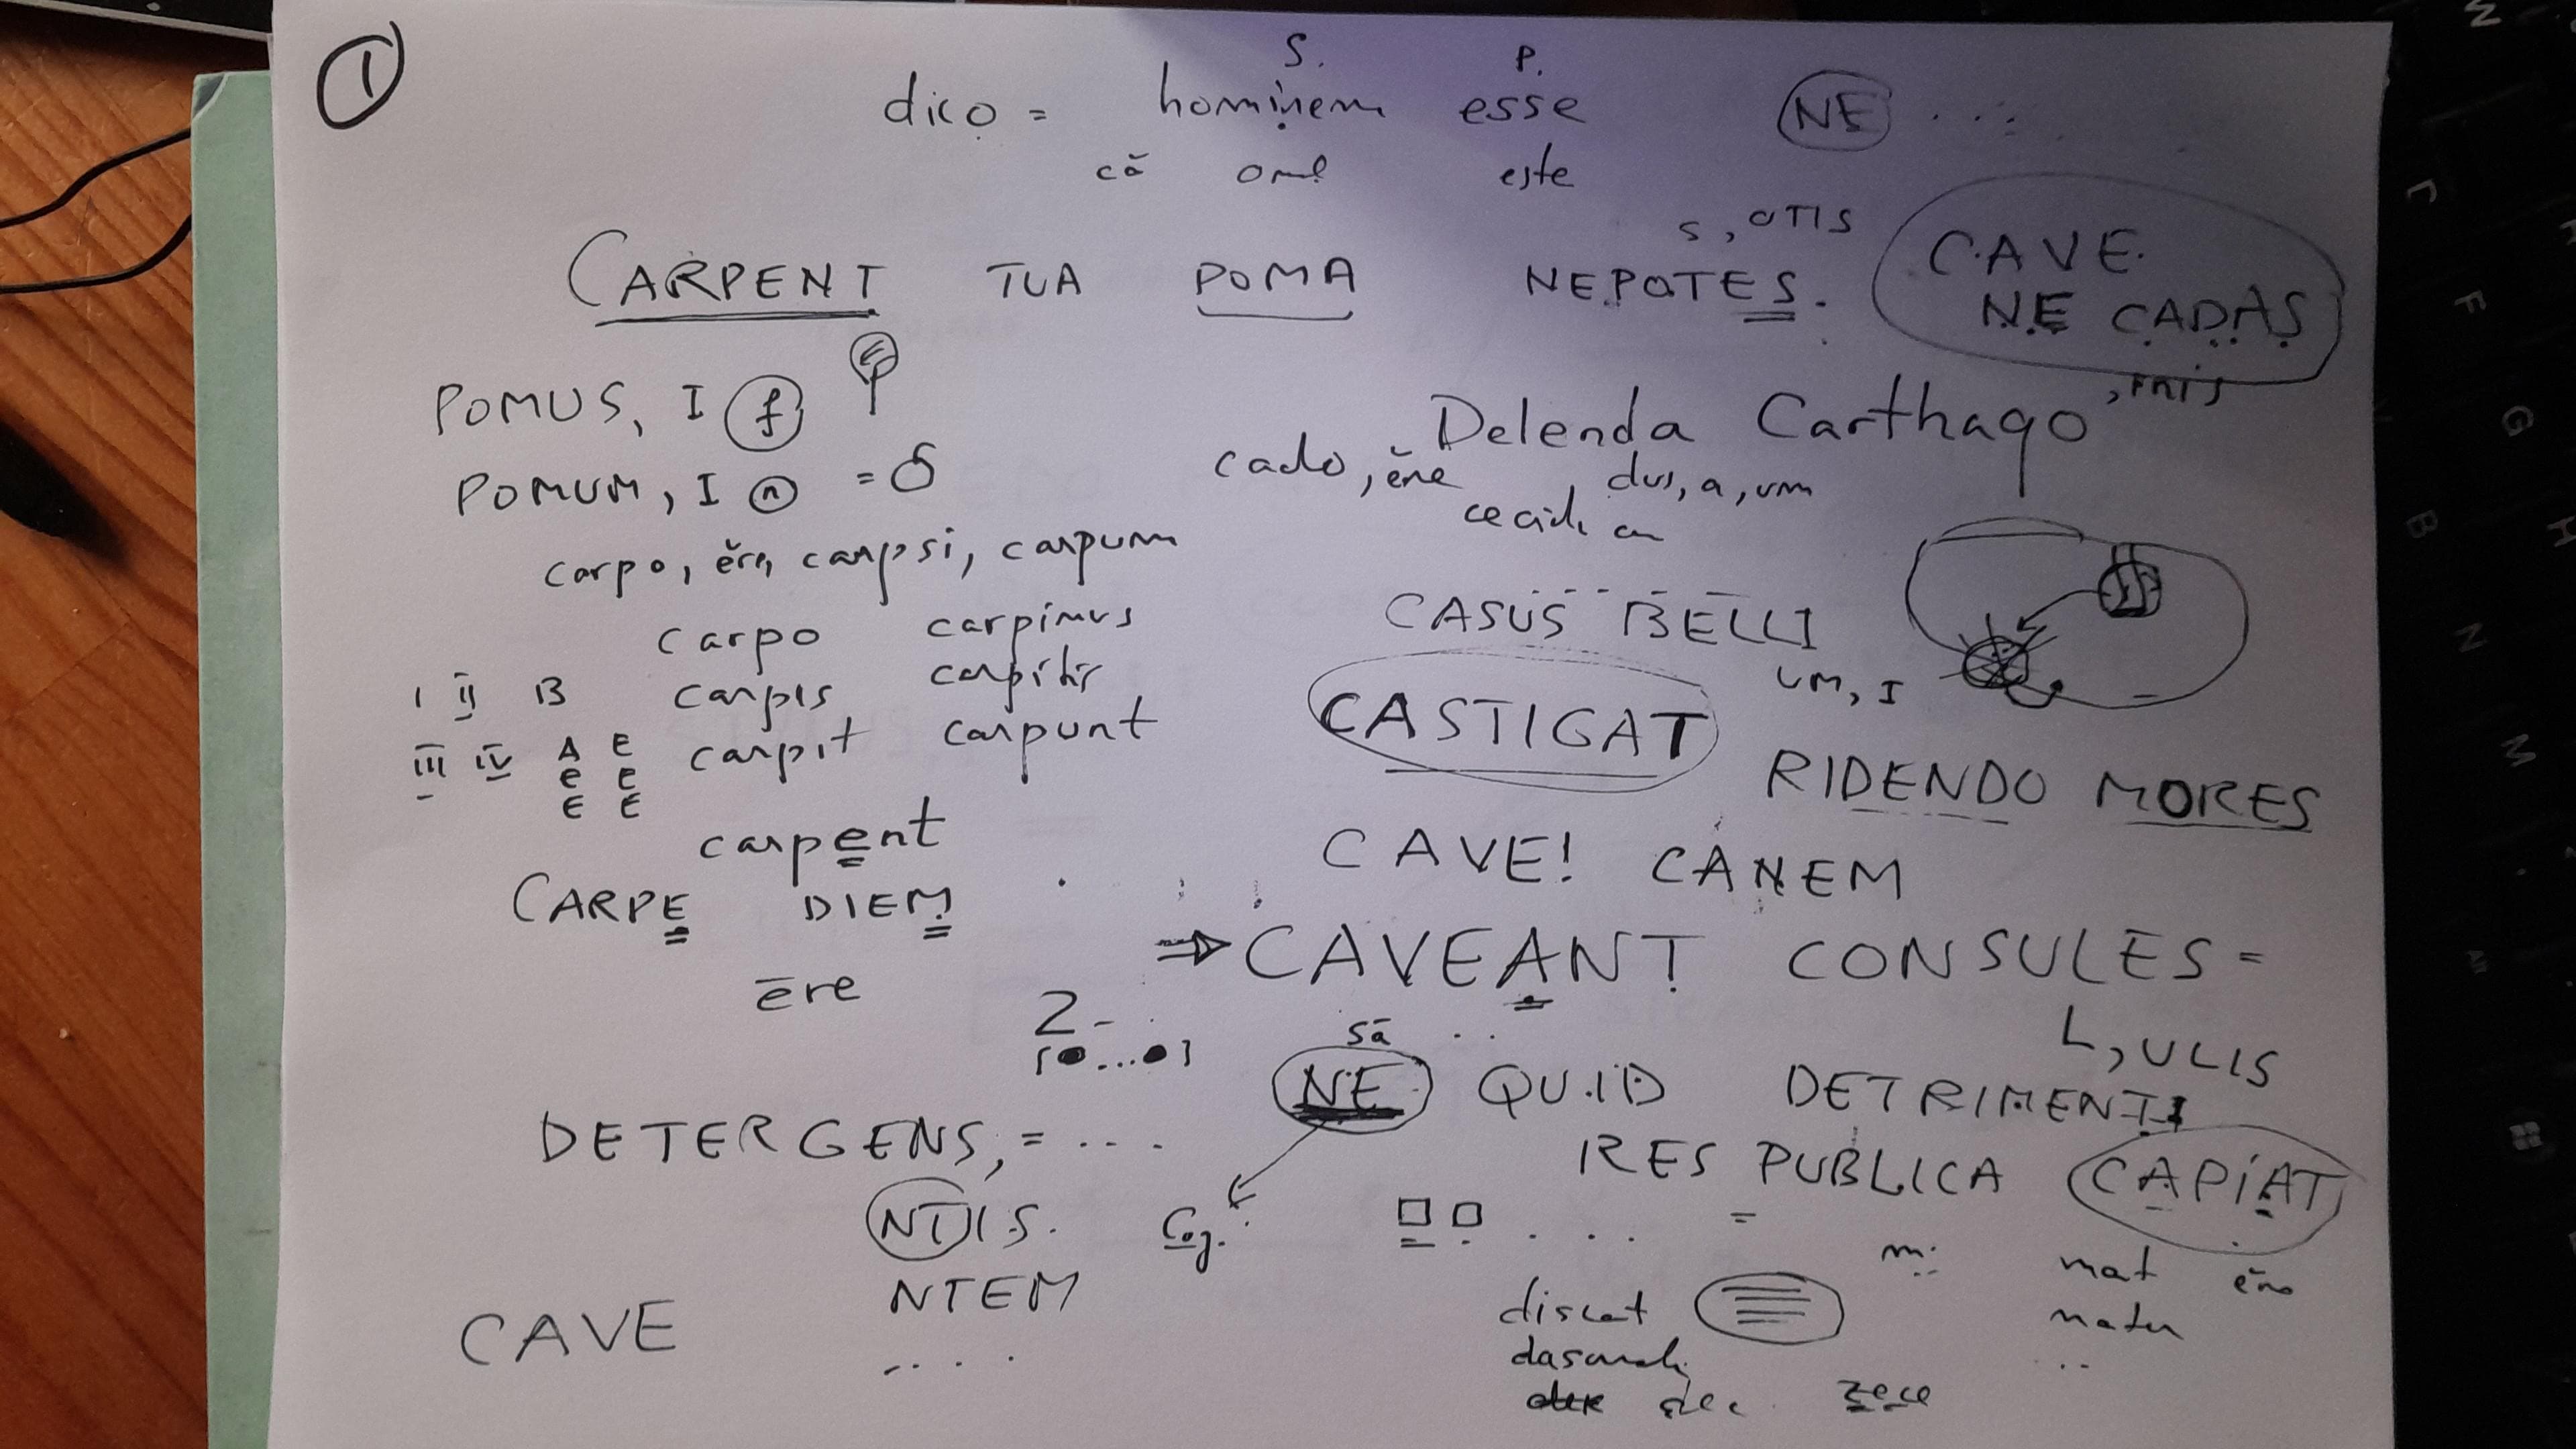 1
S. P.
dico = hominem esse NE ....
că omul este
s, OTIS
CARPENT TUA POMA NEPOTES.
CAVE
NE CADAS
POMUS, I f
POMUM, I n =
Delenda Carthago
cado, ĕre dus, a, um
carpo, ĕre, carpsi, carpum
CASUS BELLI
UM, I
carpo carpimus
I II B carpis carpitis
III IV A E carpit carpunt
E E
E E
CASTIGAT
RIDENDO MORES
carpent
CAVE! CANEM
CARPE DIEM
⇒ CAVEANT CONSULES =
L, ULIS
ēre
2 - .
să ..
NE QUID DETRIMENTI
RES PUBLICA CAPIAT
DETERGENS, = ...
NTIS.
NTEM
....
=
CAVE
zece